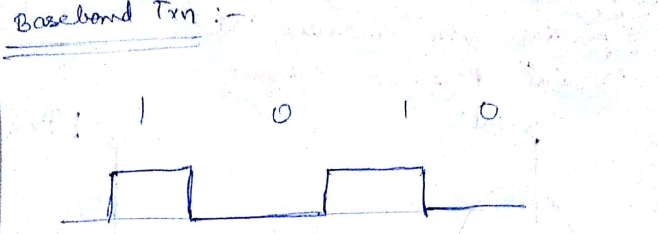 Baseband Txn :-
: 1 0 1 0